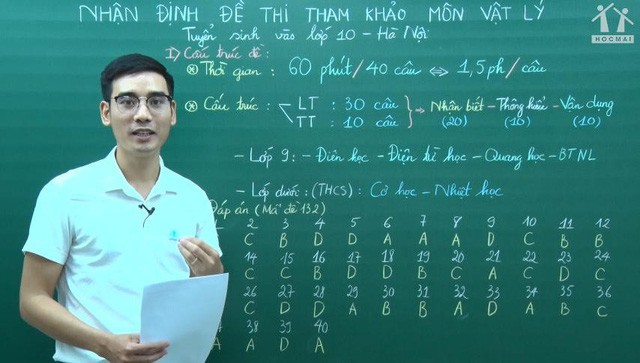 NHẬN ĐỊNH ĐỀ THI THAM KHẢO MÔN VẬT LÝ
HOCMAI
Tuyển sinh vào lớp 10 - Hà Nội
I) Cấu trúc đề:
⊛ Thời gian: 60 phút/40 câu ⇔ 1,5ph/câu
⊛ Cấu trúc: LT: 30 câu
TT: 10 câu
→ Nhận biết - Thông hiểu - Vận dụng
(20) (10) (10)
- Lớp 9: - Điện học - Điện từ học - Quang học - BTNL
- Lớp dưới: (THCS): Cơ học - Nhiệt học
Đáp án (Mã đề 132)
2 3 4 5 6 7 8 9 10 11 12
C B D D A A A D C B B
14 15 16 17 18 19 20 21 22 23 24
C C B D D B C A C D C
26 27 28 29 30 31 32 33 34 35 36
C D D A B B A D A B C
38 39 40
A A D A